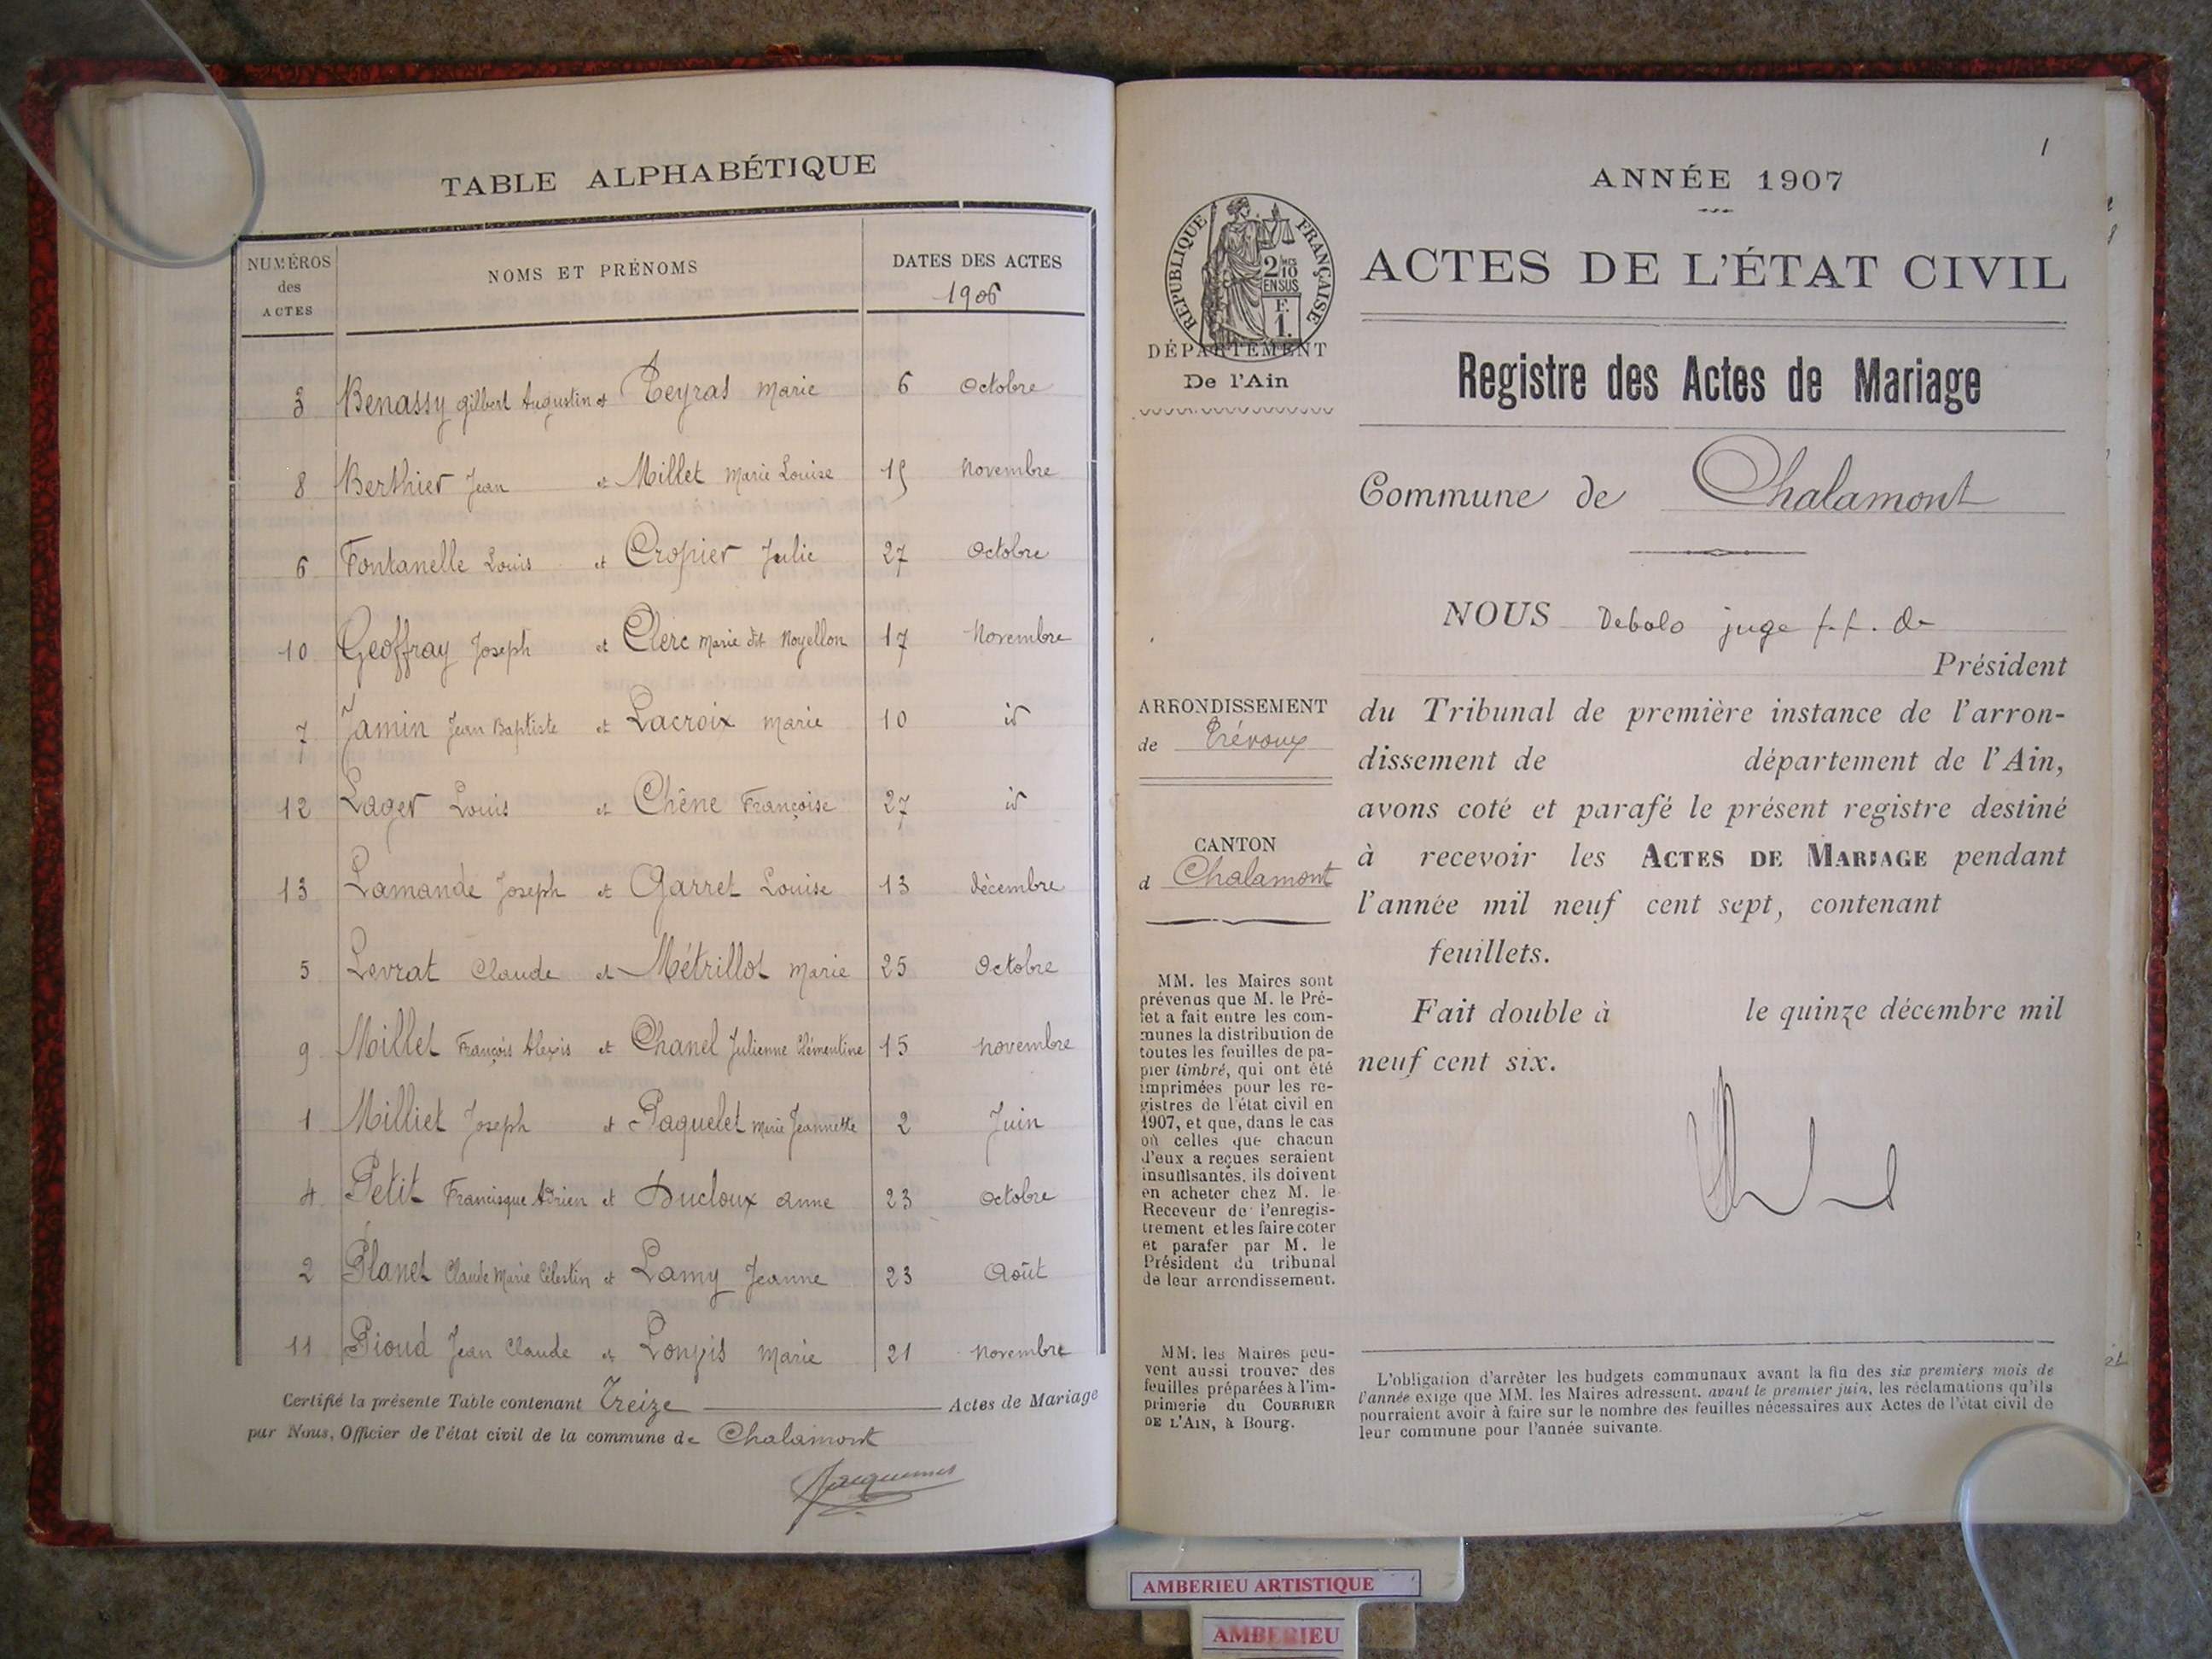 TABLE ALPHABÉTIQUE
NUMÉROS des ACTES
NOMS ET PRÉNOMS
DATES DES ACTES
1906
3 Benassy Gilbert Augustin et Peyras Marie 6 Octobre
8 Berthier Jean et Millet Marie Louise 15 Novembre
6 Fontanelle Louis et Cropier Julie 27 Octobre
10 Geoffray Joseph et Clerc Marie dit Noyellon 17 Novembre
7 Jamin Jean Baptiste et Lacroix Marie 10 id
12 Lager Louis et Chêne Françoise 27 id
13 Lamande Joseph et Garret Louise 13 décembre
5 Levrat Claude et Métrillot Marie 25 Octobre
9 Millet François Alexis et Chanel Julienne Clémentine 15 Novembre
1 Milliet Joseph et Paquelet Marie Jeannette 2 Juin
4 Petit Francisque Adrien et Ducloux Anne 23 Octobre
2 Planet Claude Marie Célestin et Lamy Jeanne 23 Août
11 Pioud Jean Claude et Longis Marie 21 Novembre
Certifié la présente Table contenant Treize Actes de Mariage
par Nous, Officier de l'état civil de la commune de Chalamont
1
ANNÉE 1907
RÉPUBLIQUE FRANÇAISE
2/10
EN SUS
F.
1.
DÉPARTEMENT
De l'Ain
ACTES DE L'ÉTAT CIVIL
Registre des Actes de Mariage
Commune de Chalamont
NOUS Debolo juge f.f. de
Président
du Tribunal de première instance de l'arron-
dissement de département de l'Ain,
avons coté et parafé le présent registre destiné
à recevoir les ACTES DE MARIAGE pendant
l'année mil neuf cent sept, contenant
feuillets.
Fait double à le quinze décembre mil
neuf cent six.
ARRONDISSEMENT
de Trévoux
CANTON
d Chalamont
MM. les Maires sont
prévenus que M. le Pré-
fet a fait entre les com-
munes la distribution de
toutes les feuilles de pa-
pier timbré, qui ont été
imprimées pour les re-
gistres de l'état civil en
1907, et que, dans le cas
où celles que chacun
d'eux a reçues seraient
insuffisantes, ils doivent
en acheter chez M. le
Receveur de l'enregis-
trement et les faire coter
et parafer par M. le
Président du tribunal
de leur arrondissement.
MM. les Maires peu-
vent aussi trouver des
feuilles préparées à l'im-
primerie du COURRIER
DE L'AIN, à Bourg.
L'obligation d'arrêter les budgets communaux avant la fin des six premiers mois de
l'année exige que MM. les Maires adressent, avant le premier juin, les réclamations qu'ils
pourraient avoir à faire sur le nombre des feuilles nécessaires aux Actes de l'état civil de
leur commune pour l'année suivante.
AMBERIEU ARTISTIQUE
AMBERIEU